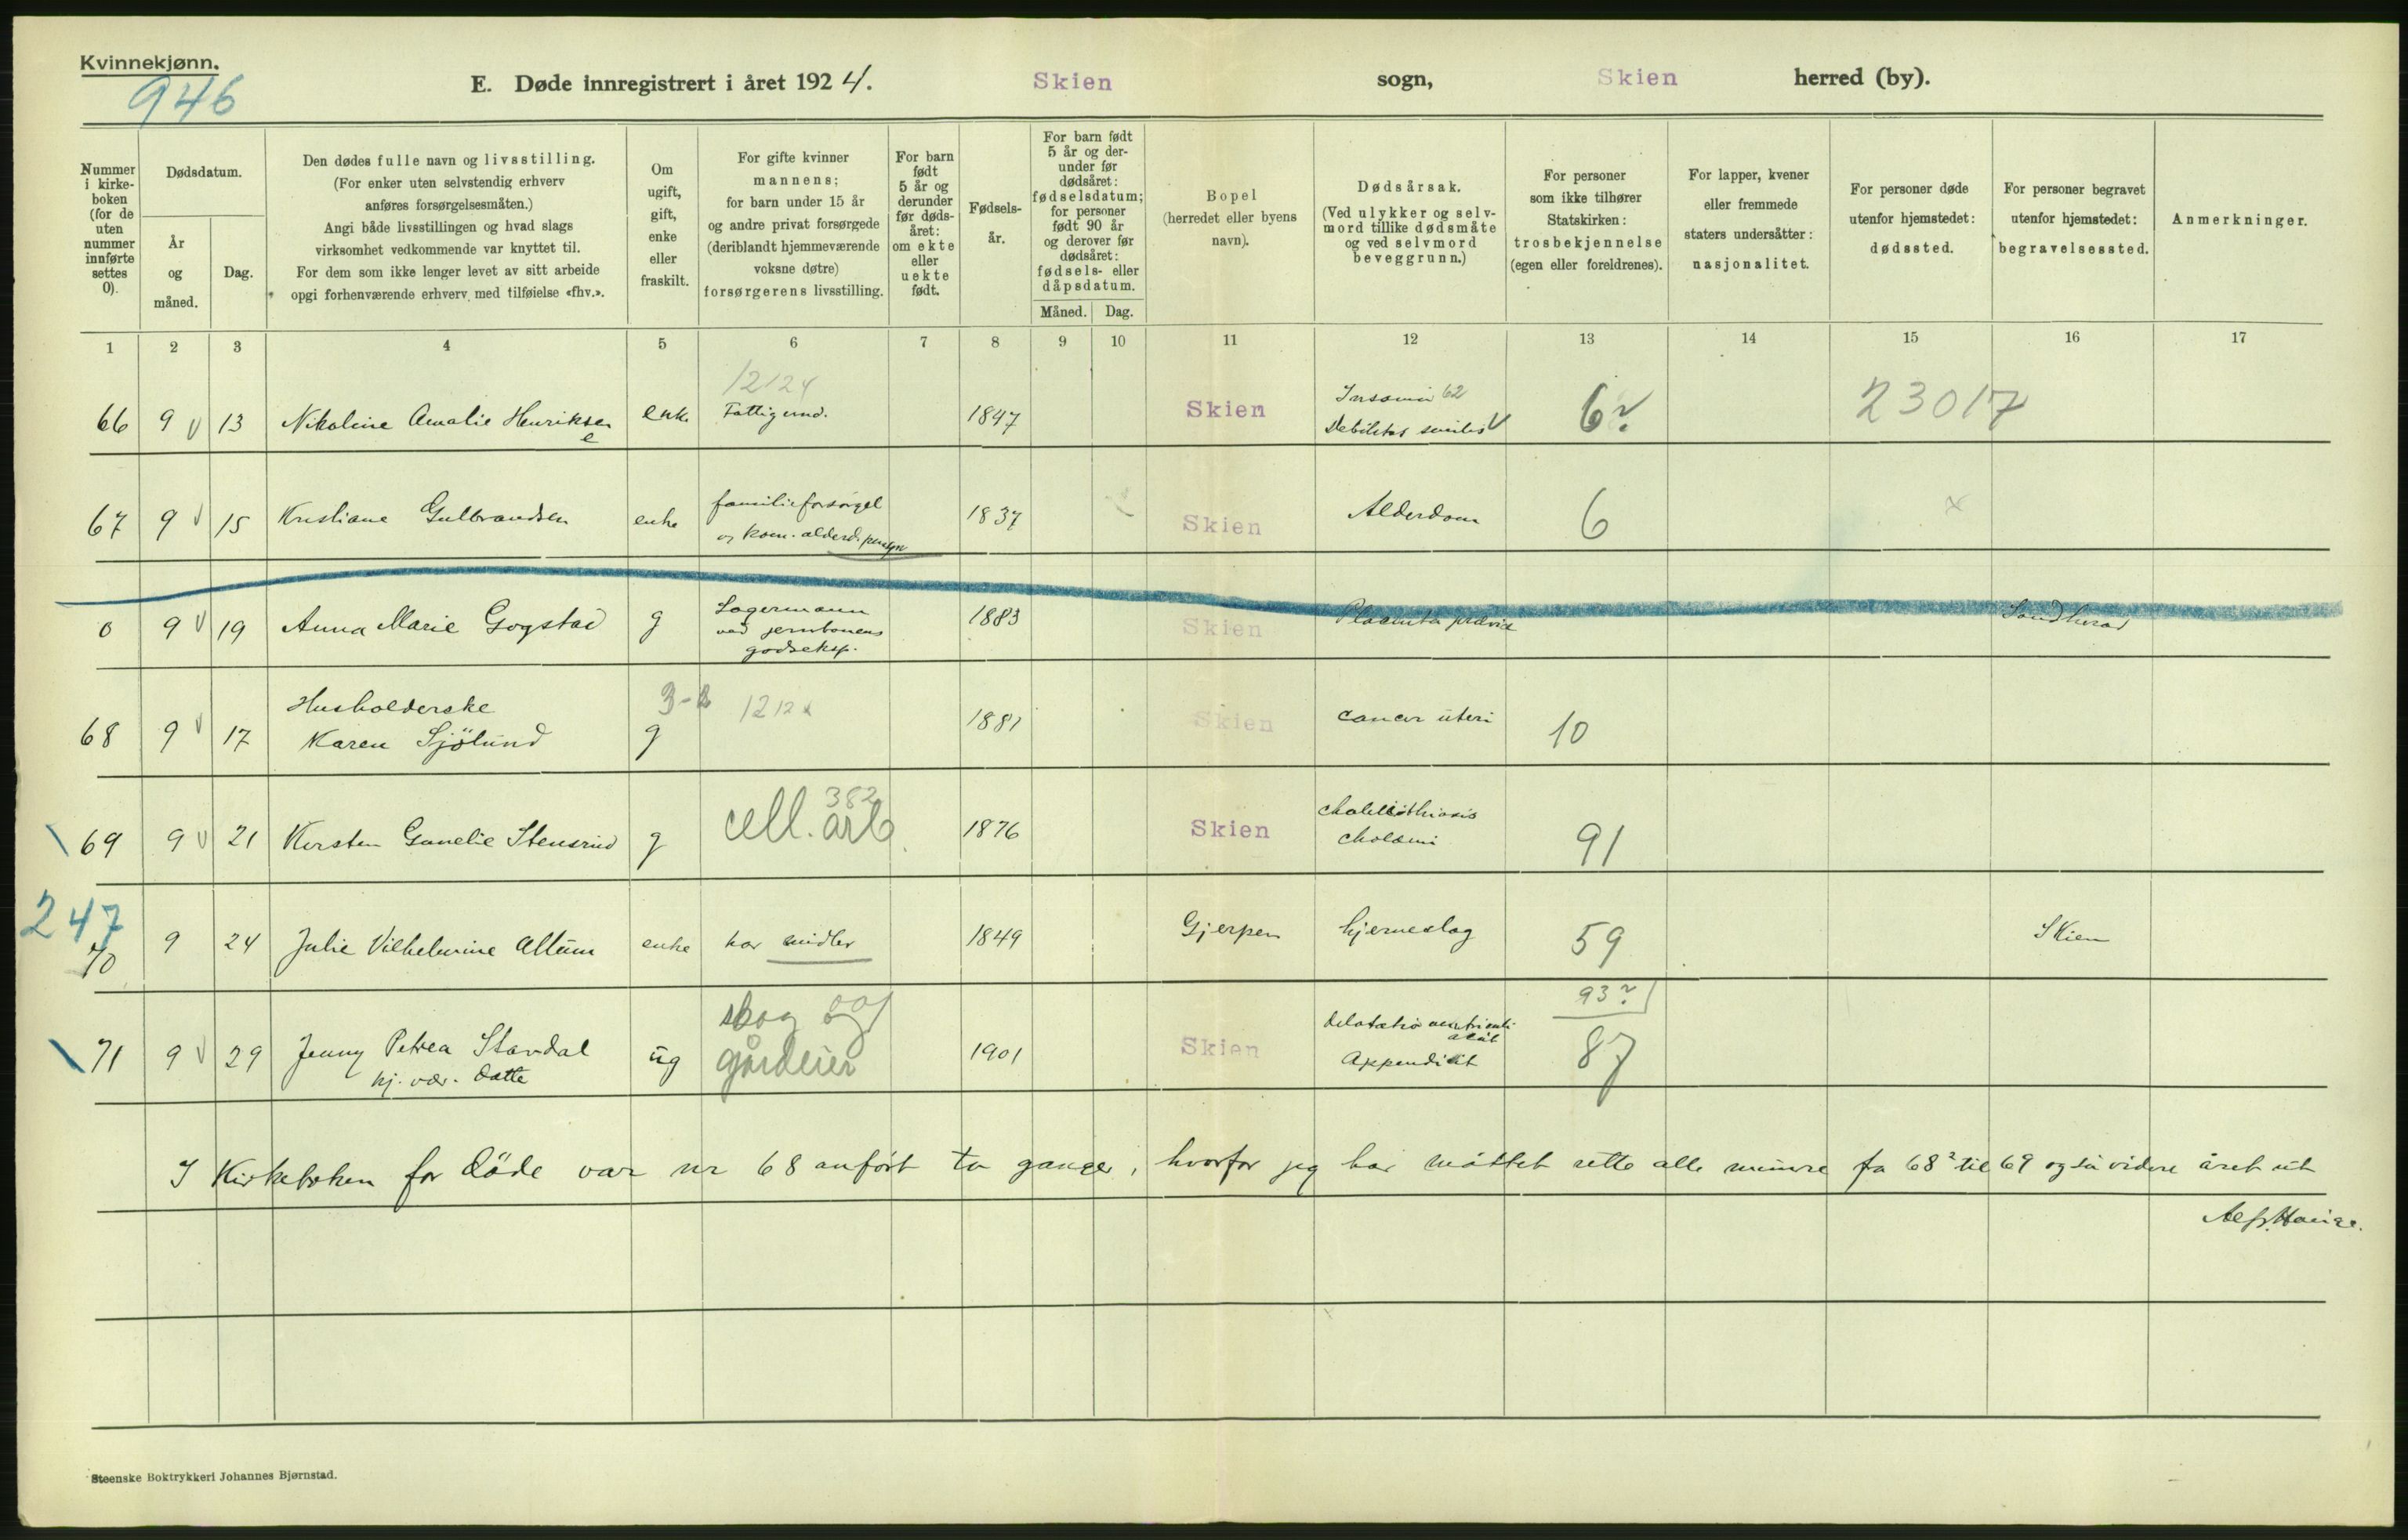 Kvinnekjønn.
946
E. Døde innregistrert i året 1924. Skien sogn, Skien herred (by).
Nummer i kirke-boken (for de uten nummer innførte settes 0).
Dødsdatum.
År og måned.
Dag.
Den dødes fulle navn og livsstilling.
(For enker uten selvstendig erhverv
anføres forsørgelsesmåten.)
Angi både livsstillingen og hvad slags
virksomhet vedkommende var knyttet til.
For dem som ikke lenger levet av sitt arbeide
opgi forhenværende erhverv med tilføielse «fhv.».
Om ugift, gift, enke eller fraskilt.
For gifte kvinner
mannens;
for barn under 15 år
og andre privat forsørgede
(deriblandt hjemmeværende
voksne døtre)
forsørgerens livsstilling.
For barn født 5 år og derunder før døds-året: om ekte eller uekte født.
Fødsels-år.
For barn født
5 år og der-
under før
dødsåret:
fødselsdatum;
for personer
født 90 år
og derover før
dødsåret:
fødsels- eller
dåpsdatum.
Måned. Dag.
Bopel
(herredet eller byens
navn).
Dødsårsak.
(Ved ulykker og selv-
mord tillike dødsmåte
og ved selvmord
beveggrunn.)
For personer
som ikke tilhører
Statskirken:
trosbekjennelse
(egen eller foreldrenes).
For lapper, kvener
eller fremmede
staters undersåtter:
nasjonalitet.
For personer døde
utenfor hjemstedet:
dødssted.
For personer begravet
utenfor hjemstedet:
begravelsessted.
Anmerkninger.
1 2 3 4 5 6 7 8 9 10 11 12 13 14 15 16 17
12124
66 9 v 13 Nikoline Amalie Henriksen enke Fattigund. 1847 Skien 62 Debilitas senilis v 6? 23017
67 9 v 15 Kristiane Gulbrandsen enke familieforsörgel 1837 Skien Alderdom 6
og kom. alderd. pensjon
0 9 v 19 Anna Marie Gogstad g Lagermann 1883 Skien Placenta prævia Sandherad
ved jernbanens
godseksp.
68 9 v 17 Husholderske g 1881 Skien cancer uteri 10
Karen Sjölund
69 9 v 21 Kirsten Gunelie Stensrud g cell. arb 382 1876 Skien cholelithiasis 91
Cholæmi
247
70 9 24 Julie Vilhelmine Altum enke har midler 1849 Gjerpen hjerneslag 59 Skien
71 9 v 29 Jenny Petrea Stavdal ug skog og 1901 Skien 93? 87
hj. vær. datte
gårdeier
Appendicit
I Kirkeboken for döde var nr 68 anfört to ganger, hvorfor jeg har måttet rette alle numre fra 68² til 69 og så videre året ut
Alf Hauge.
Steenske Boktrykkeri Johannes Bjørnstad.